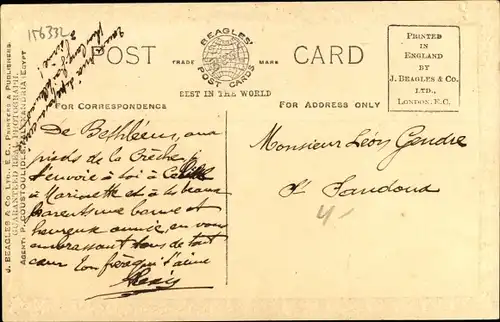 156332
POST CARD
BEAGLES'
TRADE MARK
POST CARDS
BEST IN THE WORLD
PRINTED
IN
ENGLAND
BY
J. BEAGLES & CO.
LTD.,
LONDON. E.C.
FOR CORRESPONDENCE
FOR ADDRESS ONLY
J. BEAGLES & CO., LTD., E.C., PRINTERS & PUBLISHERS.
GUARANTEED REAL PHOTOGRAPH.
AGENT: P. COUSTOULIDES, ALEXANDRIA (EGYPT
De Bethléem, aux
pieds de la Crèche, je
t'envoie à toi à
à Marinette et à tes beaux
parents une bonne et
heureuse année, en vous
embrassant tous de tout
cœur Ton frère qui t'aime
Alexis
Monsieur Léon Gendre
St Sandoux
4-